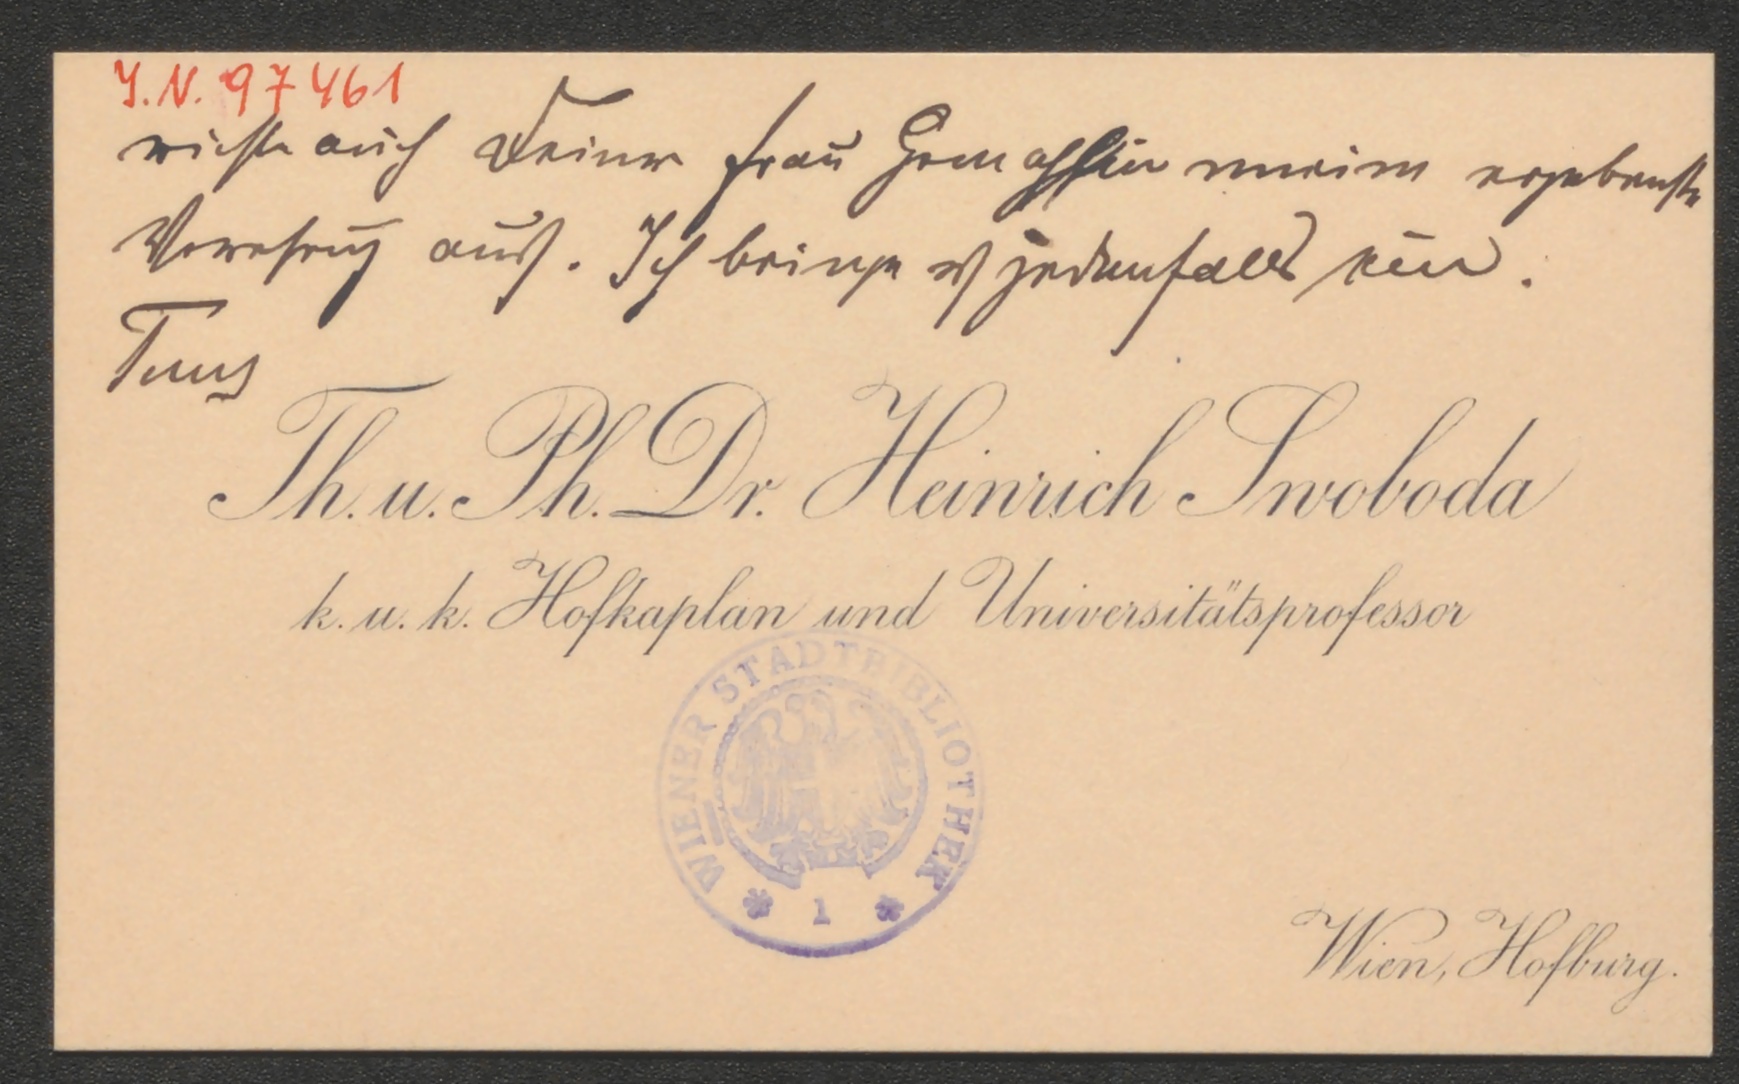 J.N. 97461
richte auch Deiner Frau Gemahlin meine ergebenste
Verehrung aus. Ich bringe es jedenfalls ein.
Th. u. Ph. Dr. Heinrich Swoboda
k. u. k. Hofkaplan und Universitätsprofessor
WIENER STADTBIBLIOTHEK
* 1 *
Wien, Hofburg.